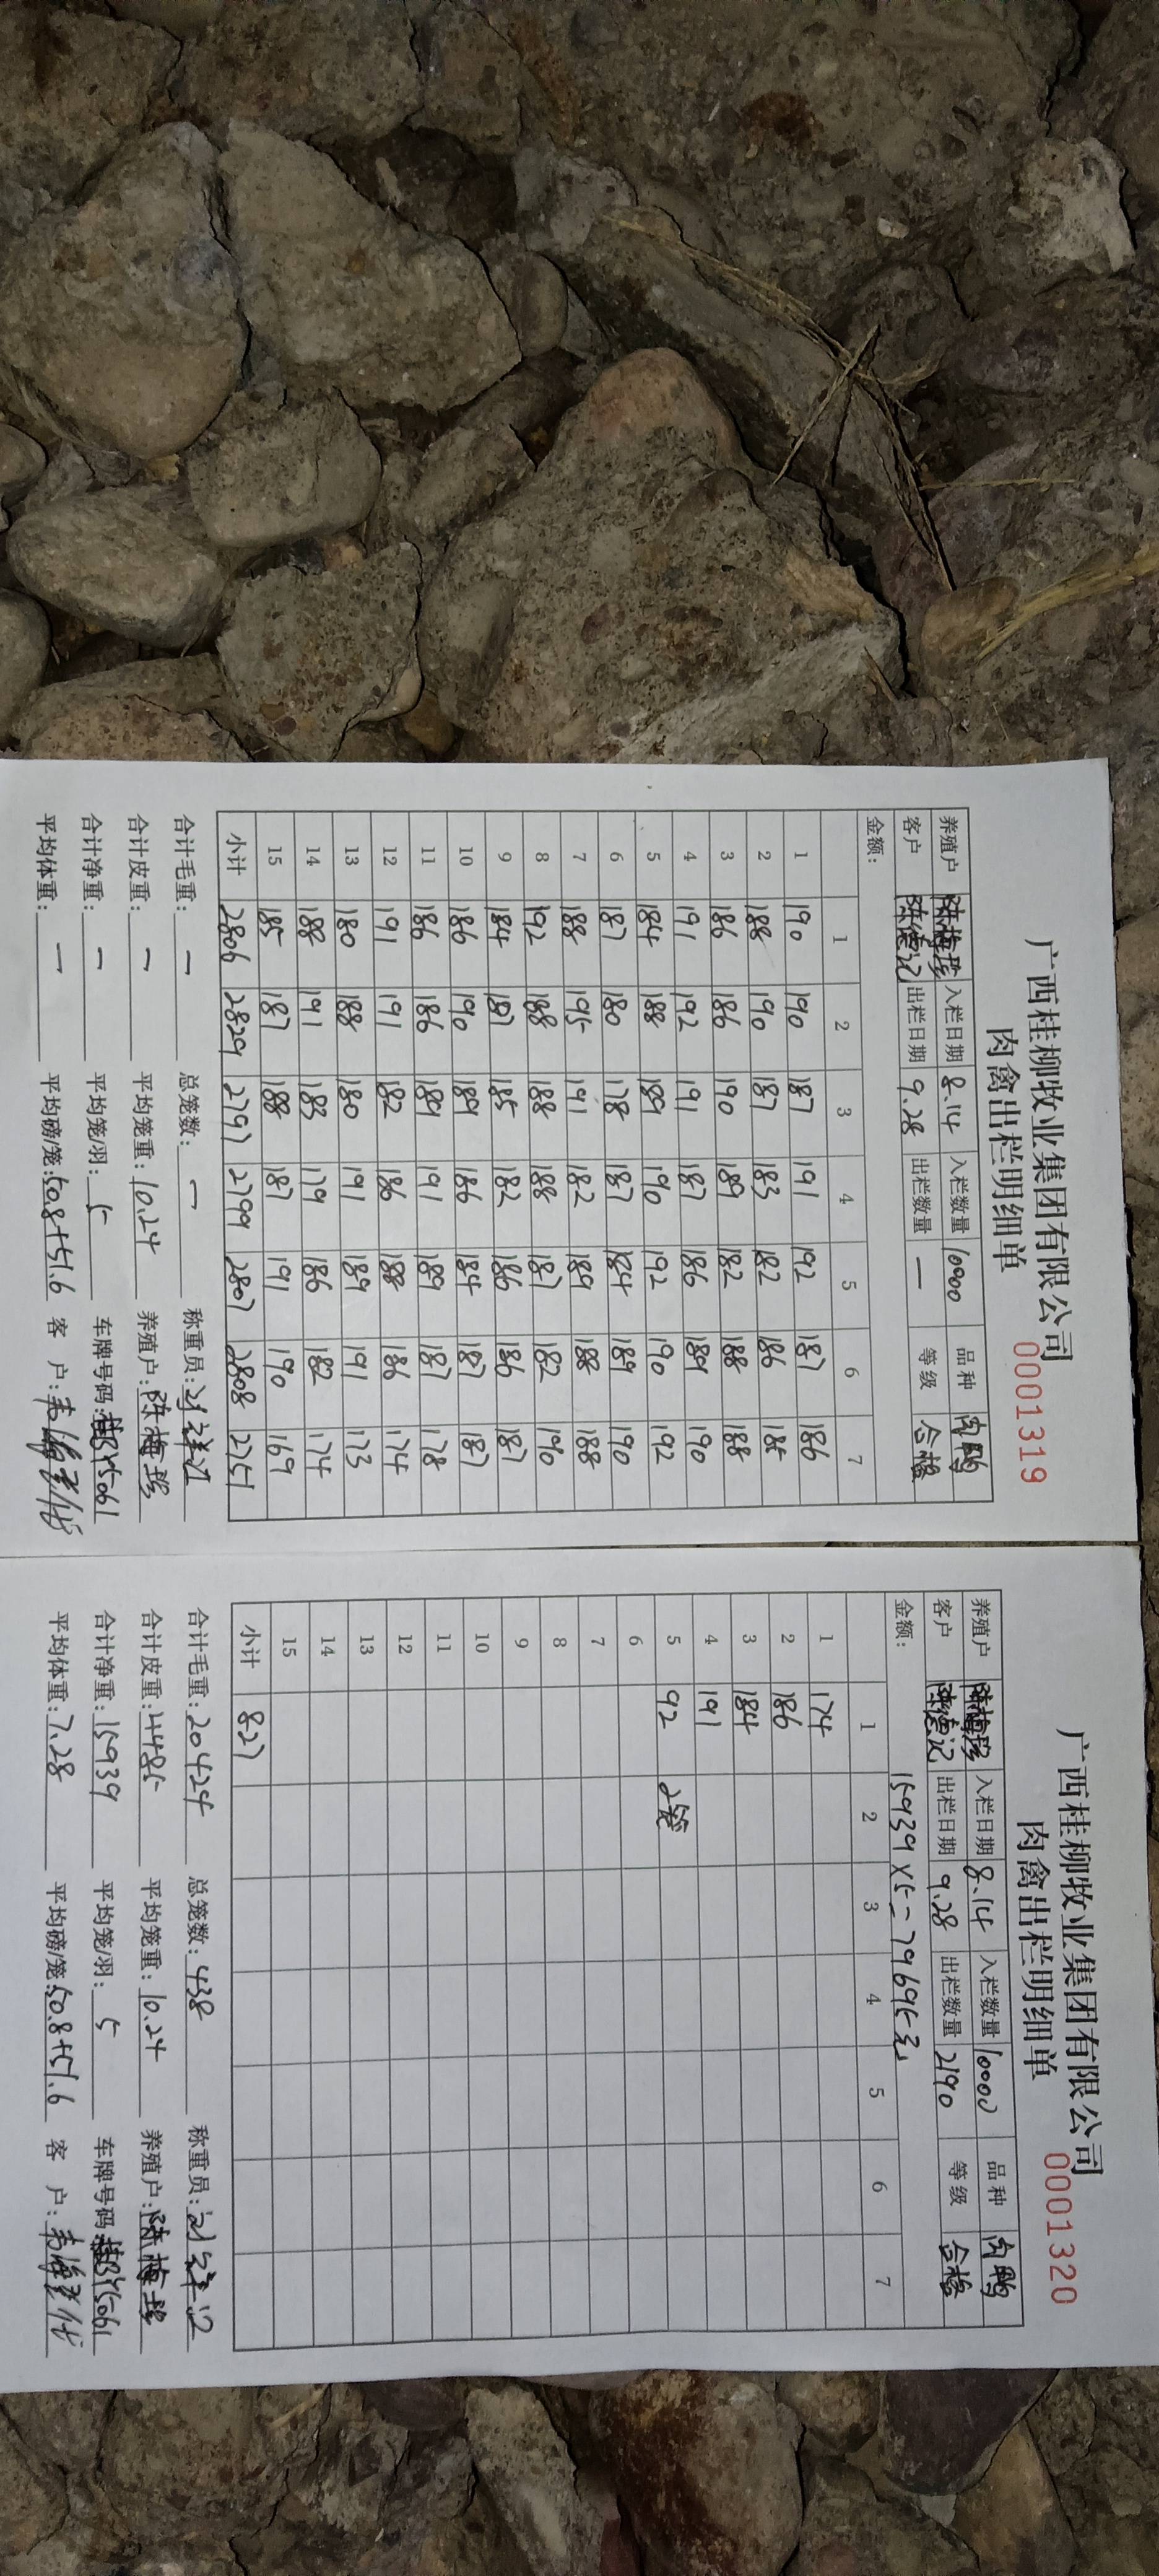 广西桂柳牧业集团有限公司
肉禽出栏明细单
0001319
养殖户 陈梅珍 入栏日期 8.14 入栏数量 10000 品种 肉鸭
客户 陈德记 出栏日期 9.28 出栏数量 — 等级 合格
金额:
1 2 3 4 5 6 7
1 190 190 187 191 192 187 186
2 188 190 187 183 182 186 185
3 186 186 190 189 182 188 188
4 191 192 191 187 186 189 190
5 184 188 189 190 192 190 192
6 187 180 178 187 184 189 190
7 188 195 191 182 189 188 188
8 192 188 188 188 187 182 190
9 184 187 185 182 186 186 187
10 186 190 189 186 184 187 187
11 186 186 189 191 189 187 178
12 191 191 182 186 188 186 174
13 180 188 180 191 189 191 173
14 188 191 183 179 186 182 174
15 185 187 188 187 191 190 169
小计 2806 2829 2797 2799 2807 2808 2751
合计毛重: — 总笼数: — 称重员:
合计皮重: — 平均笼重: 10.24 养殖户: 陈梅珍
合计净重: — 平均笼/羽: 5 车牌号码:
平均体重: — 平均磅/笼: 50.8+51.6 客户:
广西桂柳牧业集团有限公司
肉禽出栏明细单
0001320
养殖户 陈梅珍 入栏日期 8.14 入栏数量 10000 品种 肉鸭
客户 陈德记 出栏日期 9.28 出栏数量 2190 等级 合格
金额: 15939×5=79695元
1 2 3 4 5 6 7
1 174
2 186
3 184
4 191
5 92 2笼
6
7
8
9
10
11
12
13
14
15
小计 827
合计毛重: 20424 总笼数: 438 称重员:
合计皮重: 4485 平均笼重: 10.24 养殖户: 陈梅珍
合计净重: 15939 平均笼/羽: 5 车牌号码:
平均体重: 7.28 平均磅/笼: 50.8+51.6 客户: